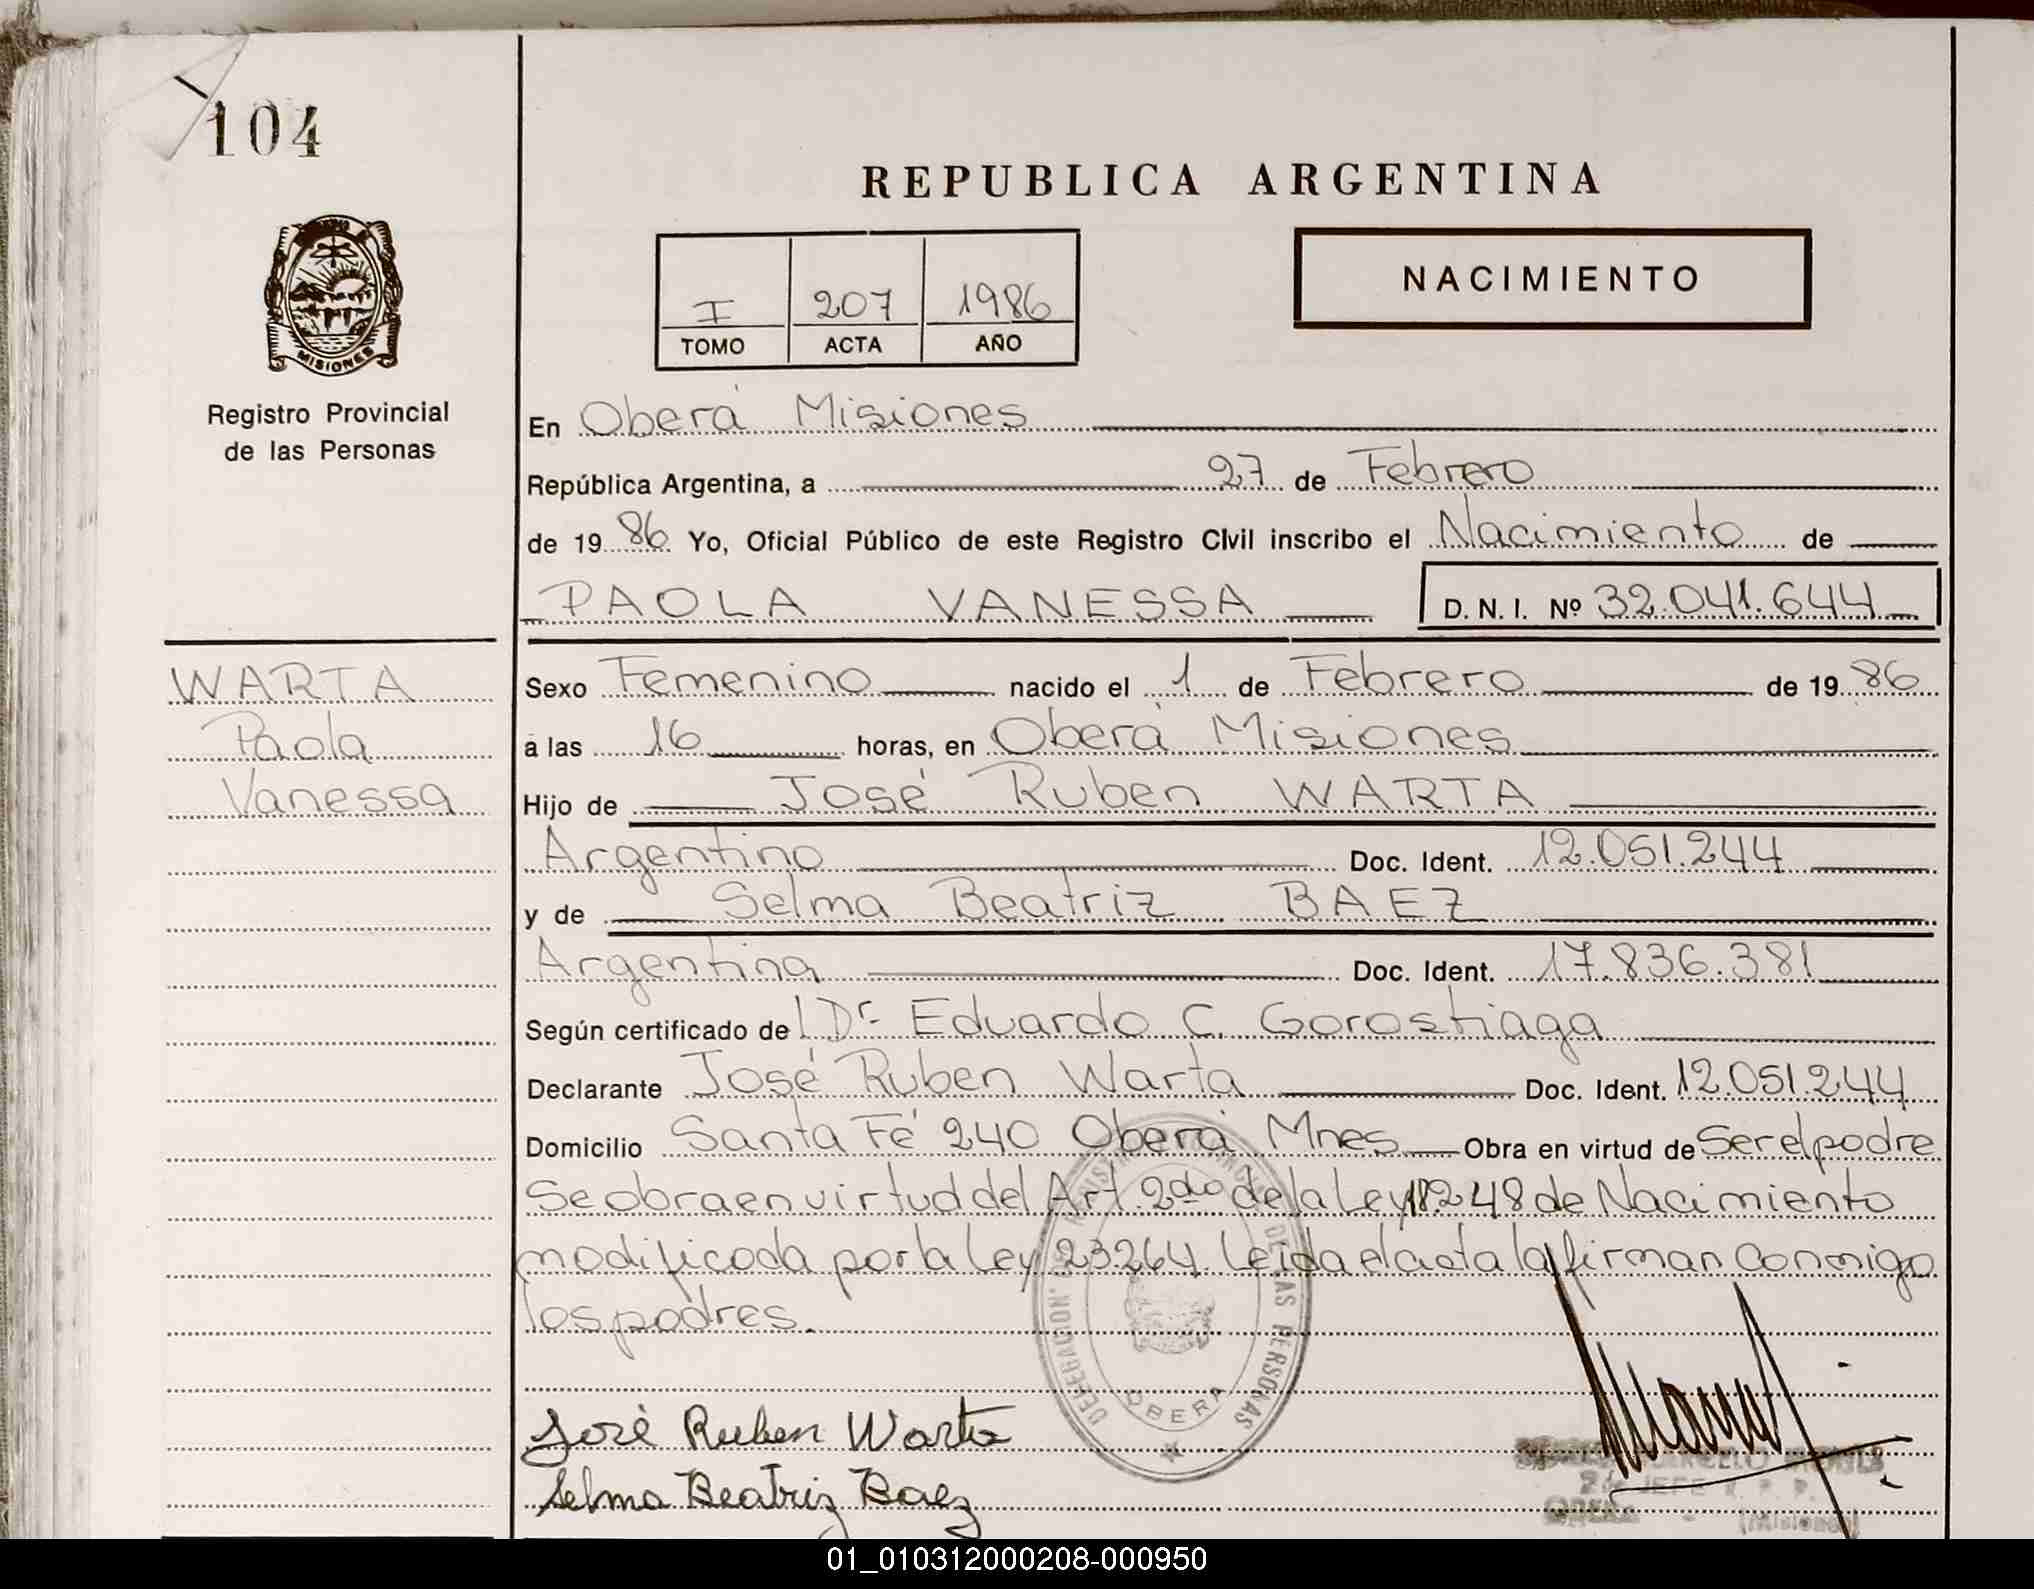 104
REPUBLICA ARGENTINA
NACIMIENTO
I 207 1986
TOMO ACTA AÑO
MISIONES
Registro Provincial
de las Personas
En Oberá Misiones
República Argentina, a 27 de Febrero
de 1986 Yo, Oficial Público de este Registro Civil inscribo el Nacimiento de
PAOLA VANESSA D. N. I. Nº 32.041.644
WARTA
Paola
Vanessa
Sexo Femenino nacido el 1 de Febrero de 1986
a las 16 horas, en Oberá Misiones
Hijo de José Ruben WARTA
Argentino Doc. Ident. 12.051.244
y de Selma Beatriz BAEZ
Argentina Doc. Ident. 17.836.381
Según certificado del Dr. Eduardo C. Gorostiaga
Declarante José Ruben Warta Doc. Ident. 12.051.244
Domicilio Santa Fé 240 Oberá Mnes Obra en virtud de Ser el padre
Se obra en virtud del Art. 2do de la Ley 18248 de Nacimiento
modificada por la Ley 23264 Leída el acta la firman conmigo
los padres.
DELEGACION REGISTRO PROVINCIAL DE LAS PERSONAS
OBERA
José Ruben Warta
Selma Beatriz Baez
MARCELO
2do JEFE R. P. P.
(Misiones)
01_010312000208-000950